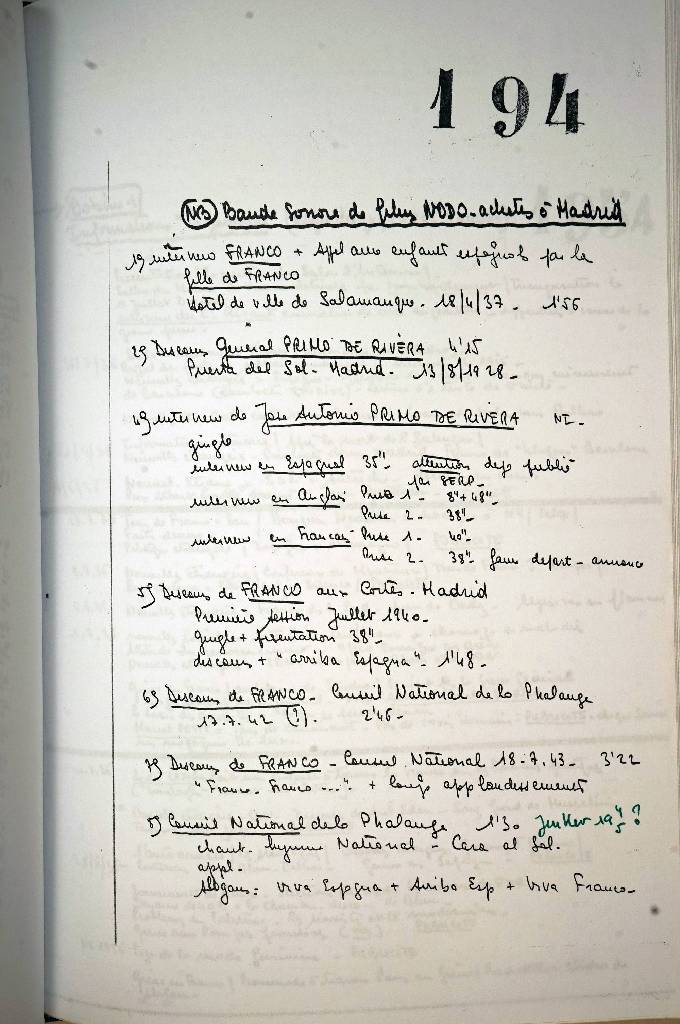 194
NB Bande Sonore de films NODO - achetés à Madrid
1°) interview FRANCO + Appel aux enfants espagnols par la
fille de FRANCO
Hotel de ville de Salamanque. 18/4/37. 1'56
2°) Discours General PRIMO DE RIVÈRA 4'15
Puerta del Sol - Madrid - 13/8/1928 -
4°) interview de Jose Antonio PRIMO DE RIVÈRA NI -
gingle
interview en Espagnol 35" attention deja publié
par SERP -
interview en Anglais Prise 1 - 8" + 48"
Prise 2 - 38"
interview en Français Prise 1 - 40"
Prise 2 - 38" faux depart - annonce
5°) Discours de FRANCO aux Cortès - Madrid
Première session Juillet 1940 -
gingle + presentation 38"
discours + "arriba Espagna" - 1'48 -
6°) Discours de FRANCO - Conseil National de la Phalange
17.7.42 (?). 2'46 -
7°) Discours de FRANCO - Conseil National 18-7.43 - 3'22
"Franco - Franco ..." + longs applaudissements
8°) Conseil National de la Phalange 1'30 Juillet 19 4/5 ?
chant - hymne National - Cara al Sol -
appl -
slogans : Viva Espagna + Arriba Esp + Viva Franco -